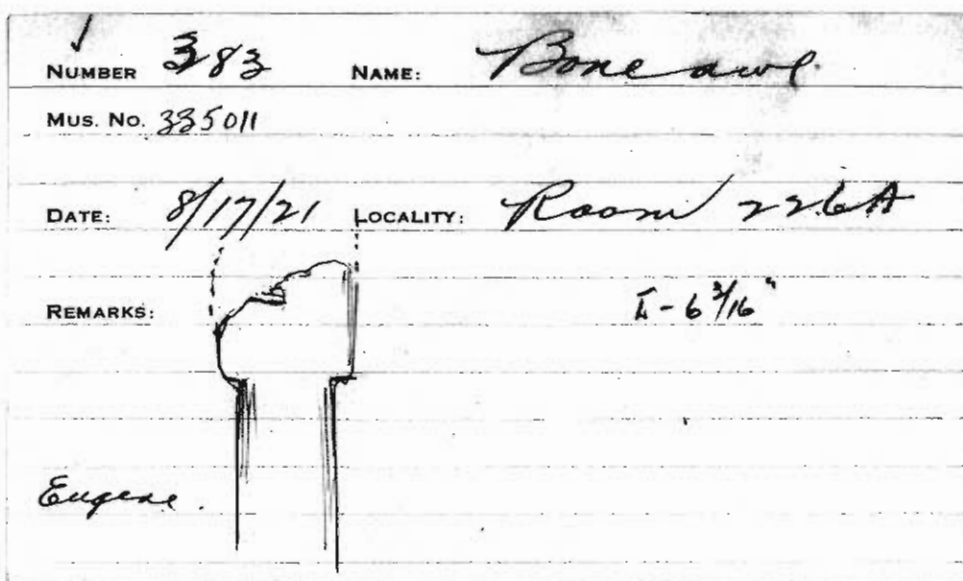 NUMBER 383 NAME: Bone awl.
MUS. NO. 335011
DATE: 8/17/21 LOCALITY: Room 226A
REMARKS: L - 6 3/16"
Eugene.